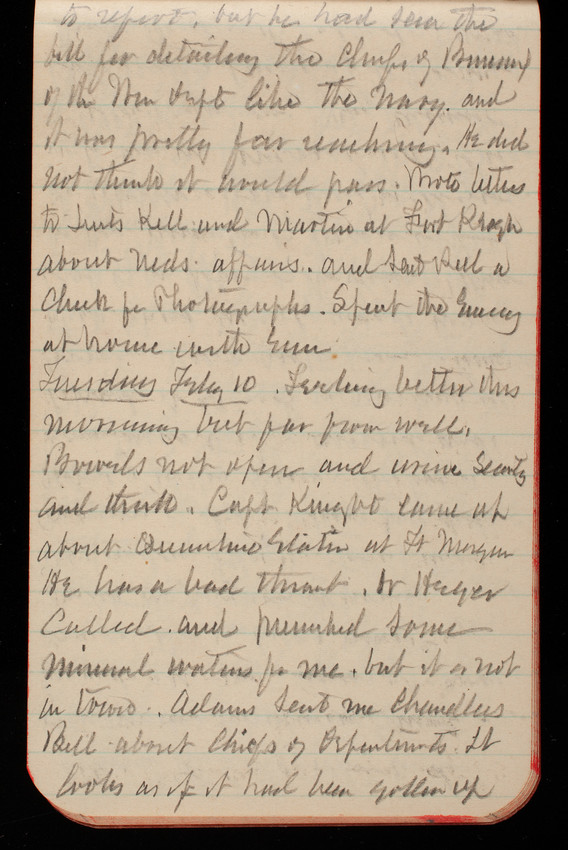 to report. but he had seen the
bill for detailing the Chiefs of Bureaux
of the War Dept like the Navy. and
it was pretty far reaching. He did
not think it would pass. Wrote letters
to Lieuts Kell and Martin at Fort Keogh
about Neds affairs. and sent Kell a
check for Photographs. Spent the Evening
at home with Em
Tuesday Feby 10. Feeling better this
morning but far from well.
Bowels not open and urine scanty
and thick. Capt Knight came up
about at Ft Morgan
He has a bad throat. Dr Heger
Called and prescribed some
mineral waters for me. but it is not
in town. Adams sent me Chandlers
Bill about Chiefs of Departments. It
looks as if it had been gotten up